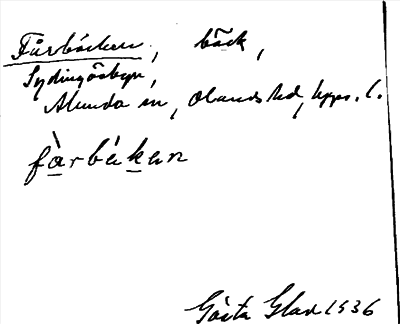 Fårbäcken, bäck,
Sydingösbyn,
Alunda sn, Olands hd, Upps. l.
fàrbékan
Gösta Glad 1936